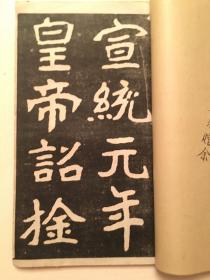 宣統元年
皇帝詔捡